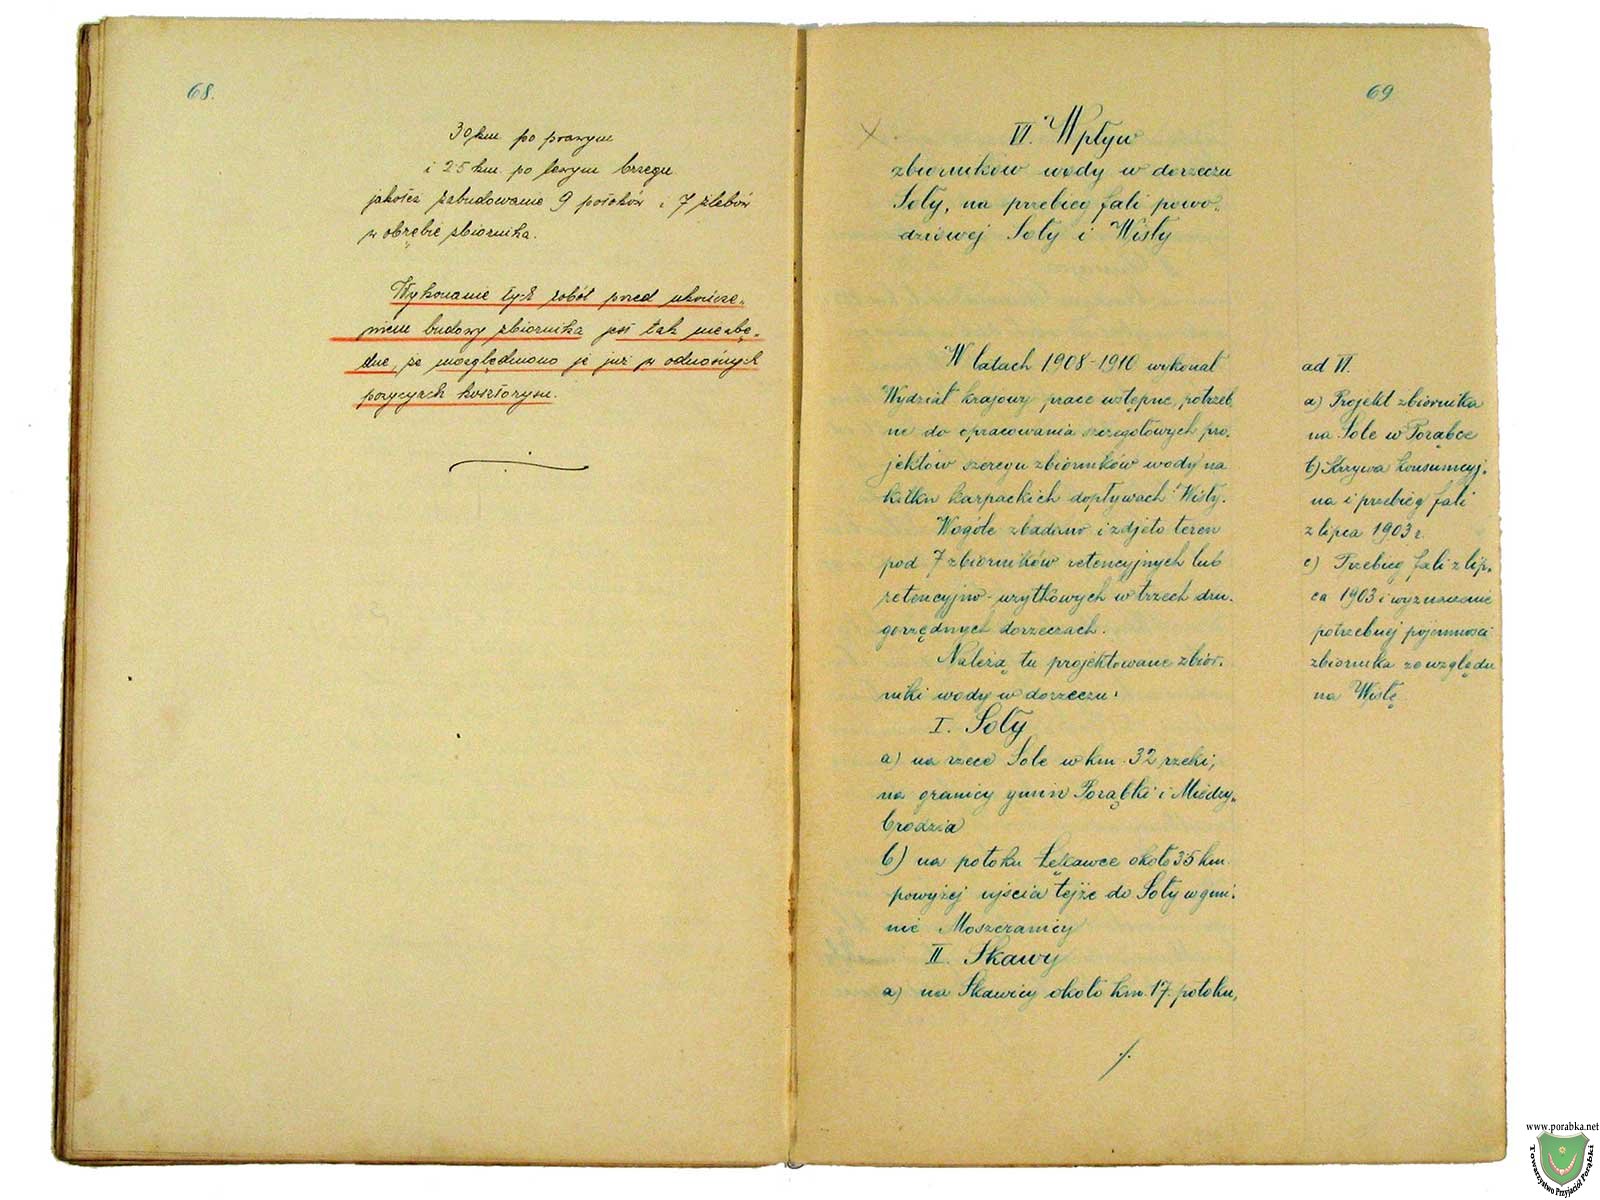 68.
30 km po prawym
i 25 km. po lewym brzegu
jakoteż zabudowanie 9 potoków i 7 żlebów
w obrębie zbiornika.
Wykonanie tych robót przed ukończe-
niem budowy zbiornika jest tak niezbę-
dne, że uwzględniono je już w odnośnych
pozycyach kosztorysu.
69
VI. Wpływ
zbiorników wody w dorzeczu
Soły, na przebieg fali powo-
dziowej Soły i Wisły
W latach 1908-1910 wykonał
Wydział krajowy prace wstępne, potrzeb
ne do opracowania szczegółowych pro-
jektów szeregu zbiorników wody na
kilku karpackich dopływach Wisły.
Wogóle zbadano i zdjęto teren
pod 7 zbiorników retencyjnych lub
retencyjno-użytkowych w trzech dru-
gorzędnych dorzeczach.
Należą tu projektowane zbior-
niki wody w dorzeczu:
I. Soły
a) na rzece Sole w km. 32 rzeki,
na granicy gmin Porąbki i Między-
brodzia
b) na potoku Łękawce około 3·5 km.
powyżej ujścia tejże do Soły w gmi-
nie Moszczanicy
II. Skawy
a) na Skawicy około km. 17. potoku,
./.
ad VI.
a) Projekt zbiornika
na Sole w Porąbce
b) Krzywa konsumcyj-
na i przebieg fali
z lipca 1903 r.
c) Przebieg fali z lip-
ca 1903 i wyznaczenie
potrzebnej pojemności
zbiornika ze względu
na Wisłę
www.porabka.net
Towarzystwo Przyjaciół Porąbki